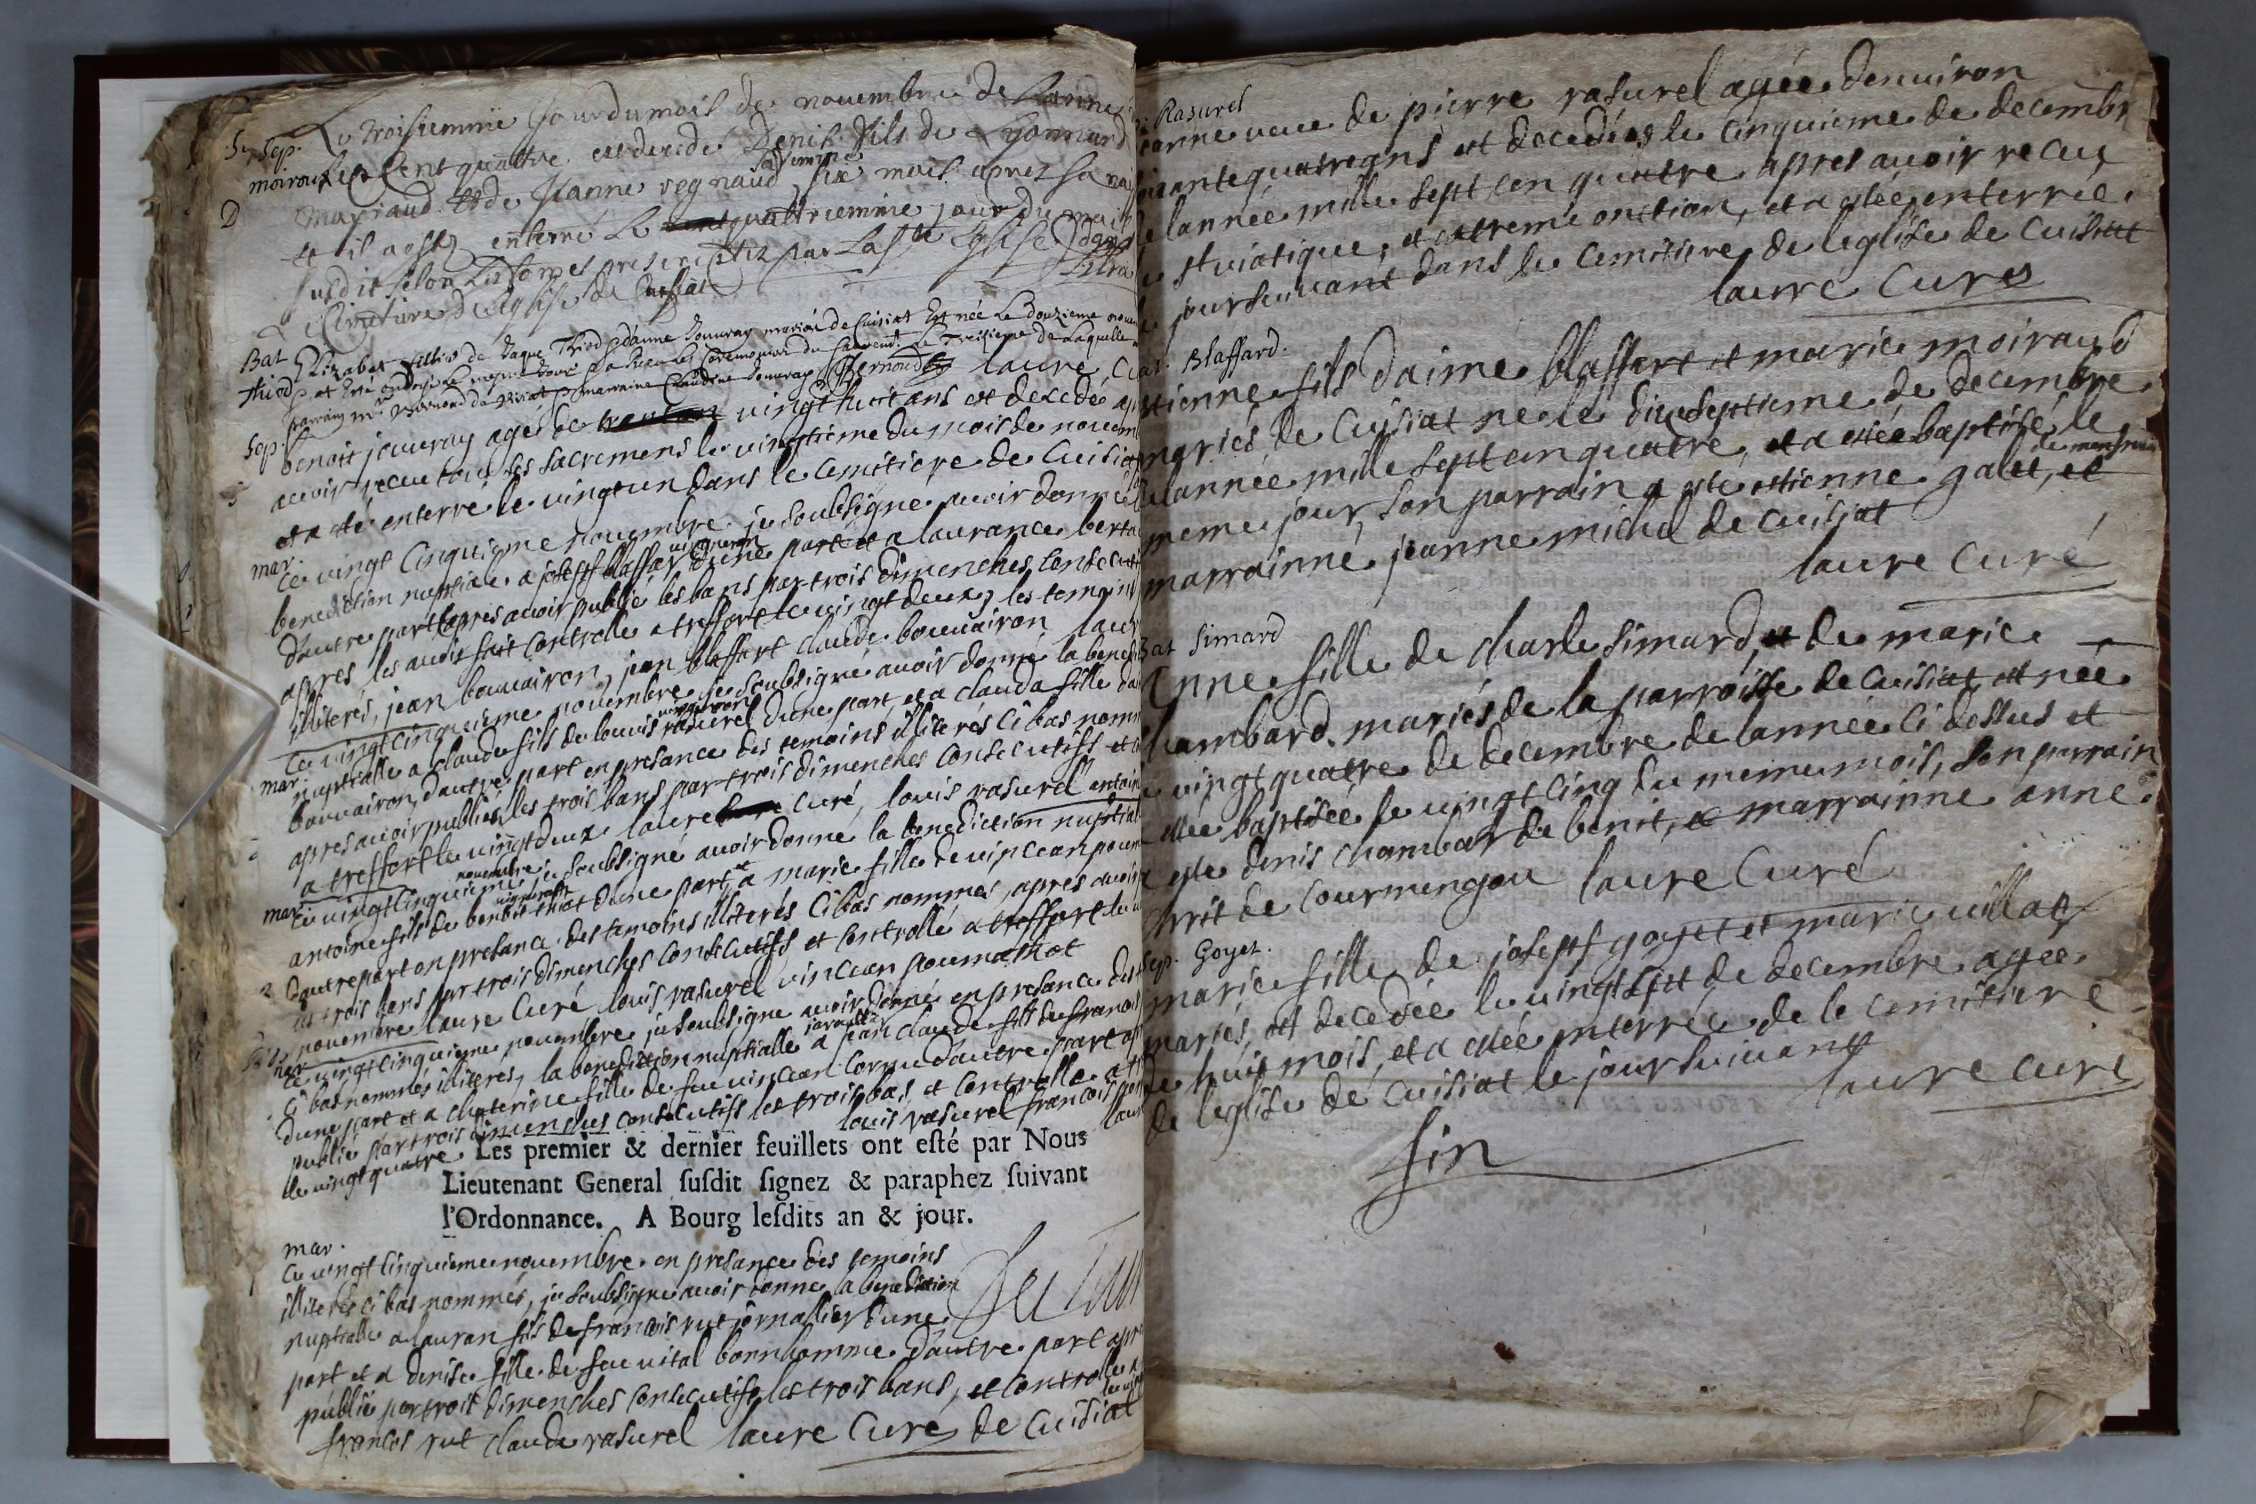 Sep. Le troisiemme Jour du mois de novembre de Lannee
moiroux sept Cent quattre est decede Denis fils de Lyonnard
D mayraud et de Jeanne regnaud sa femme, six mois apres sa nai
et il a esté enterré Le quattriemme jour du mois
susdit selon Les formes prescrittes par La ste Eglise dans
Le Cimetiere de leglise de Cuisiat
Bat Elizabet fillie de Jaque Thiod et danne Jouvray mariés de Cuisiat Est née Le Douzieme novem
thiod et Eté ondoyé le mesme Jour Les Ceremonies du Le Treisieme de Laquelle
parrain mre marraine Claudine Jouvray laure
Sep. benoit jouvray agés de vingt huit ans est decedé ap
avoir receu tous les sacremens le vingtieme du mois de novem
et a esté enterré le vingt un dans le cemitiere de Cuisia
mar. Ce vingt Cinquieme novembre je soubsigne avoir donne
benediction nuptiale a joseph blaffar vigneron dune part et a laurance berta
dautre part apres avoir publié les bans par trois dimenches consecuti
apres les avoir fait controlle a treffort le vingt deux, les temoins
illiterés, jean bouvairon, jean blaffart claude bouvairon laur
mar. Ce vingt cinquieme novembre je soubsigne avoir donné la bened
nuptialle a claude fils de louis rasurel vigneron dune part, et a clauda fille da
bouvairon, dautre part en presance des temoins illiterés ci bas nomm
apres avoir publiés les trois bans par trois dimenches consecutifs et
a treffort le vingt deux laure curé, louis rasurel antoin
mar. Ce vingt cinquieme novembre je soubsigné avoir donne la benediction nuptial
antoine fils de benoit thiot vigneron dune part, et a marie fille de vincean poum
dautre part en presance des temoins illiterés ci bas nommés, apres avoir
les trois bans par trois dimenches consecutifs et controllé a treffort le
novembre laure Curé louis rasurel vincean poumathot
mar Ce vingt cinquieme novembre je soubsigne avoir donné en presance des
ci bas nommés iliterés, la benediction nuptialle a jean claude fils de francois
dune part et a chaterine fille de feu vincean Cornu dautre part ap
publié par trois dimenches consecutifs les trois bas, et controlle a tr
le vingt quatre. louis rasurel francois laur
Les premier & dernier feuillets ont esté par Nous
Lieutenant General susdit signez & paraphez suivant
l'Ordonnance. A Bourg lesdits an & jour.
mar.
Ce vingt cinquieme novembre en presance des temoins
illiterés ci bas nommés, je soubsigne avoir donne la benediction
nuptialle a lauran fils de francois rut jornallier dune
part et a denise fille de feu vital bonnhomme dautre part apr
publié par trois dimenches consecutifs les trois bans, et controlle a
francois rut claude rasurel laure Curé de Cuisiat
Rasurel
anne veuve de pierre rasurel agée denviron
soixante quatre ans est decedées le cinquieme de decembr
de lannée mille sept cen quatre apres avoir receu
le st viatique, et extreme onction, et a estée enterrée
le jour suivant dans le cemitiere de leglise de Cuisiat
laure Curé
Bat. Blaffard.
etienne fils daime blaffart et marie moiraud
mariés de Cuisiat ne le dix septieme de decembre
de lannée mille sept cen quatre, et a estée baptisé le
meme jour, son parrain a este ettienne galet, et
marrainne jeanne michel de cuisiat
laure Curé
Bat Simard
Anne fille de charle simard, et de marie
chambard mariés de la parroisse de cuisiat est née
le vingt quatre de decembre de lannée ci dessus et
estée baptisée le vingt cinq du meme mois, son parrain
a este denis chambar de benit, et marrainne anne
de courmengou laure Curé
Sep. Goyet.
marie fille de joseph goyet et marie villat
mariés, est decedée le vingt sept de decembre agée
de huit mois, et a estée enterrée de le cemitiere
de leglise de Cuisiat le jour suivant
laure curé
fin